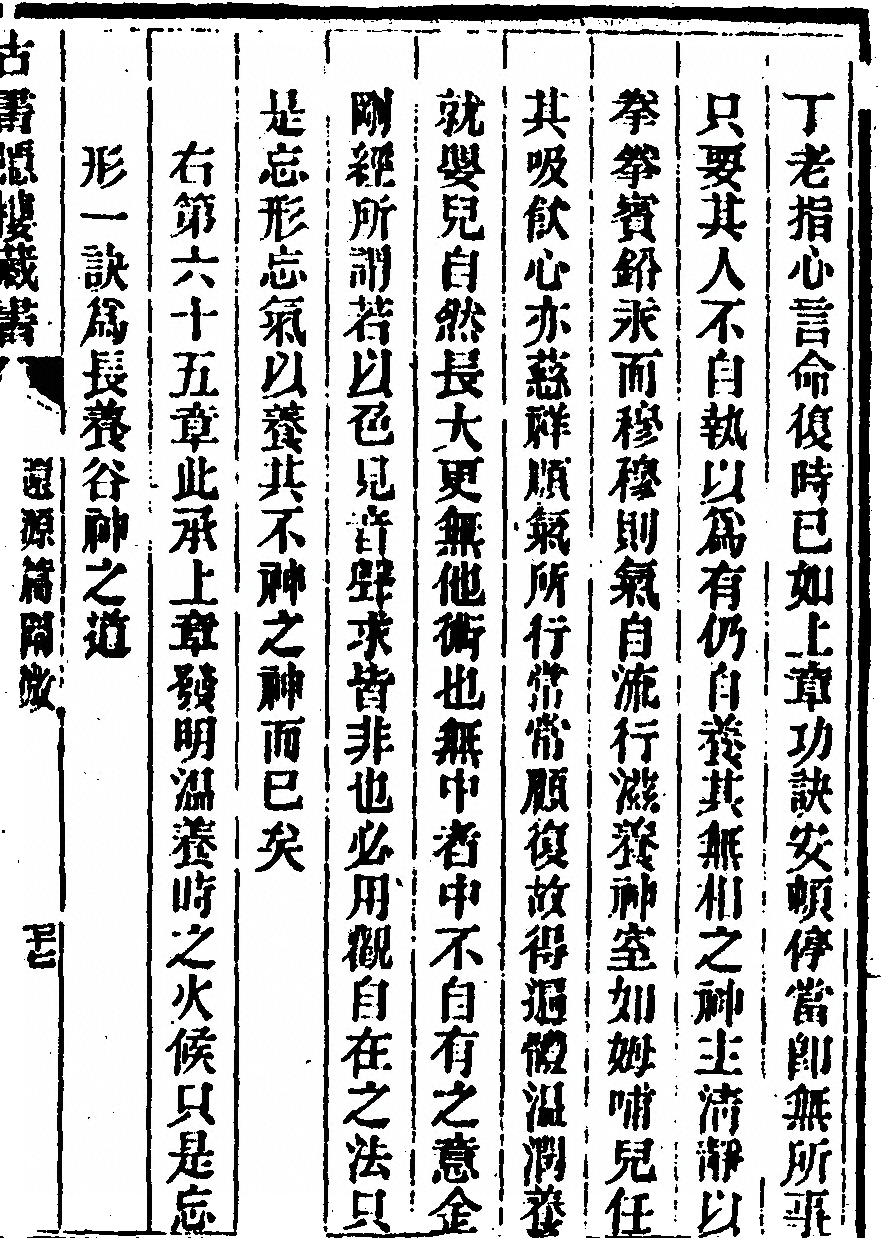 丁老指心言命復時已如上章功訣安頓停當卽無所事
只要其人不自執以爲有仍自養其無相之神主淸靜以
拳拳賓鉛汞而穆穆則氣自流行滋養神室如姆哺兒任
其吸飮心亦慈祥順氣所行常常顧復故得遍體温潤養
就嬰兒自然長大更無他術也無中者中不自有之意金
剛經所謂若以色見音聲求皆非也必用觀自在之法只
是忘形忘氣以養其不神之神而已矣
右第六十五章此承上章發明温養時之火候只是忘
形一訣爲長養谷神之道
古書隱樓藏書
還源篇闡微